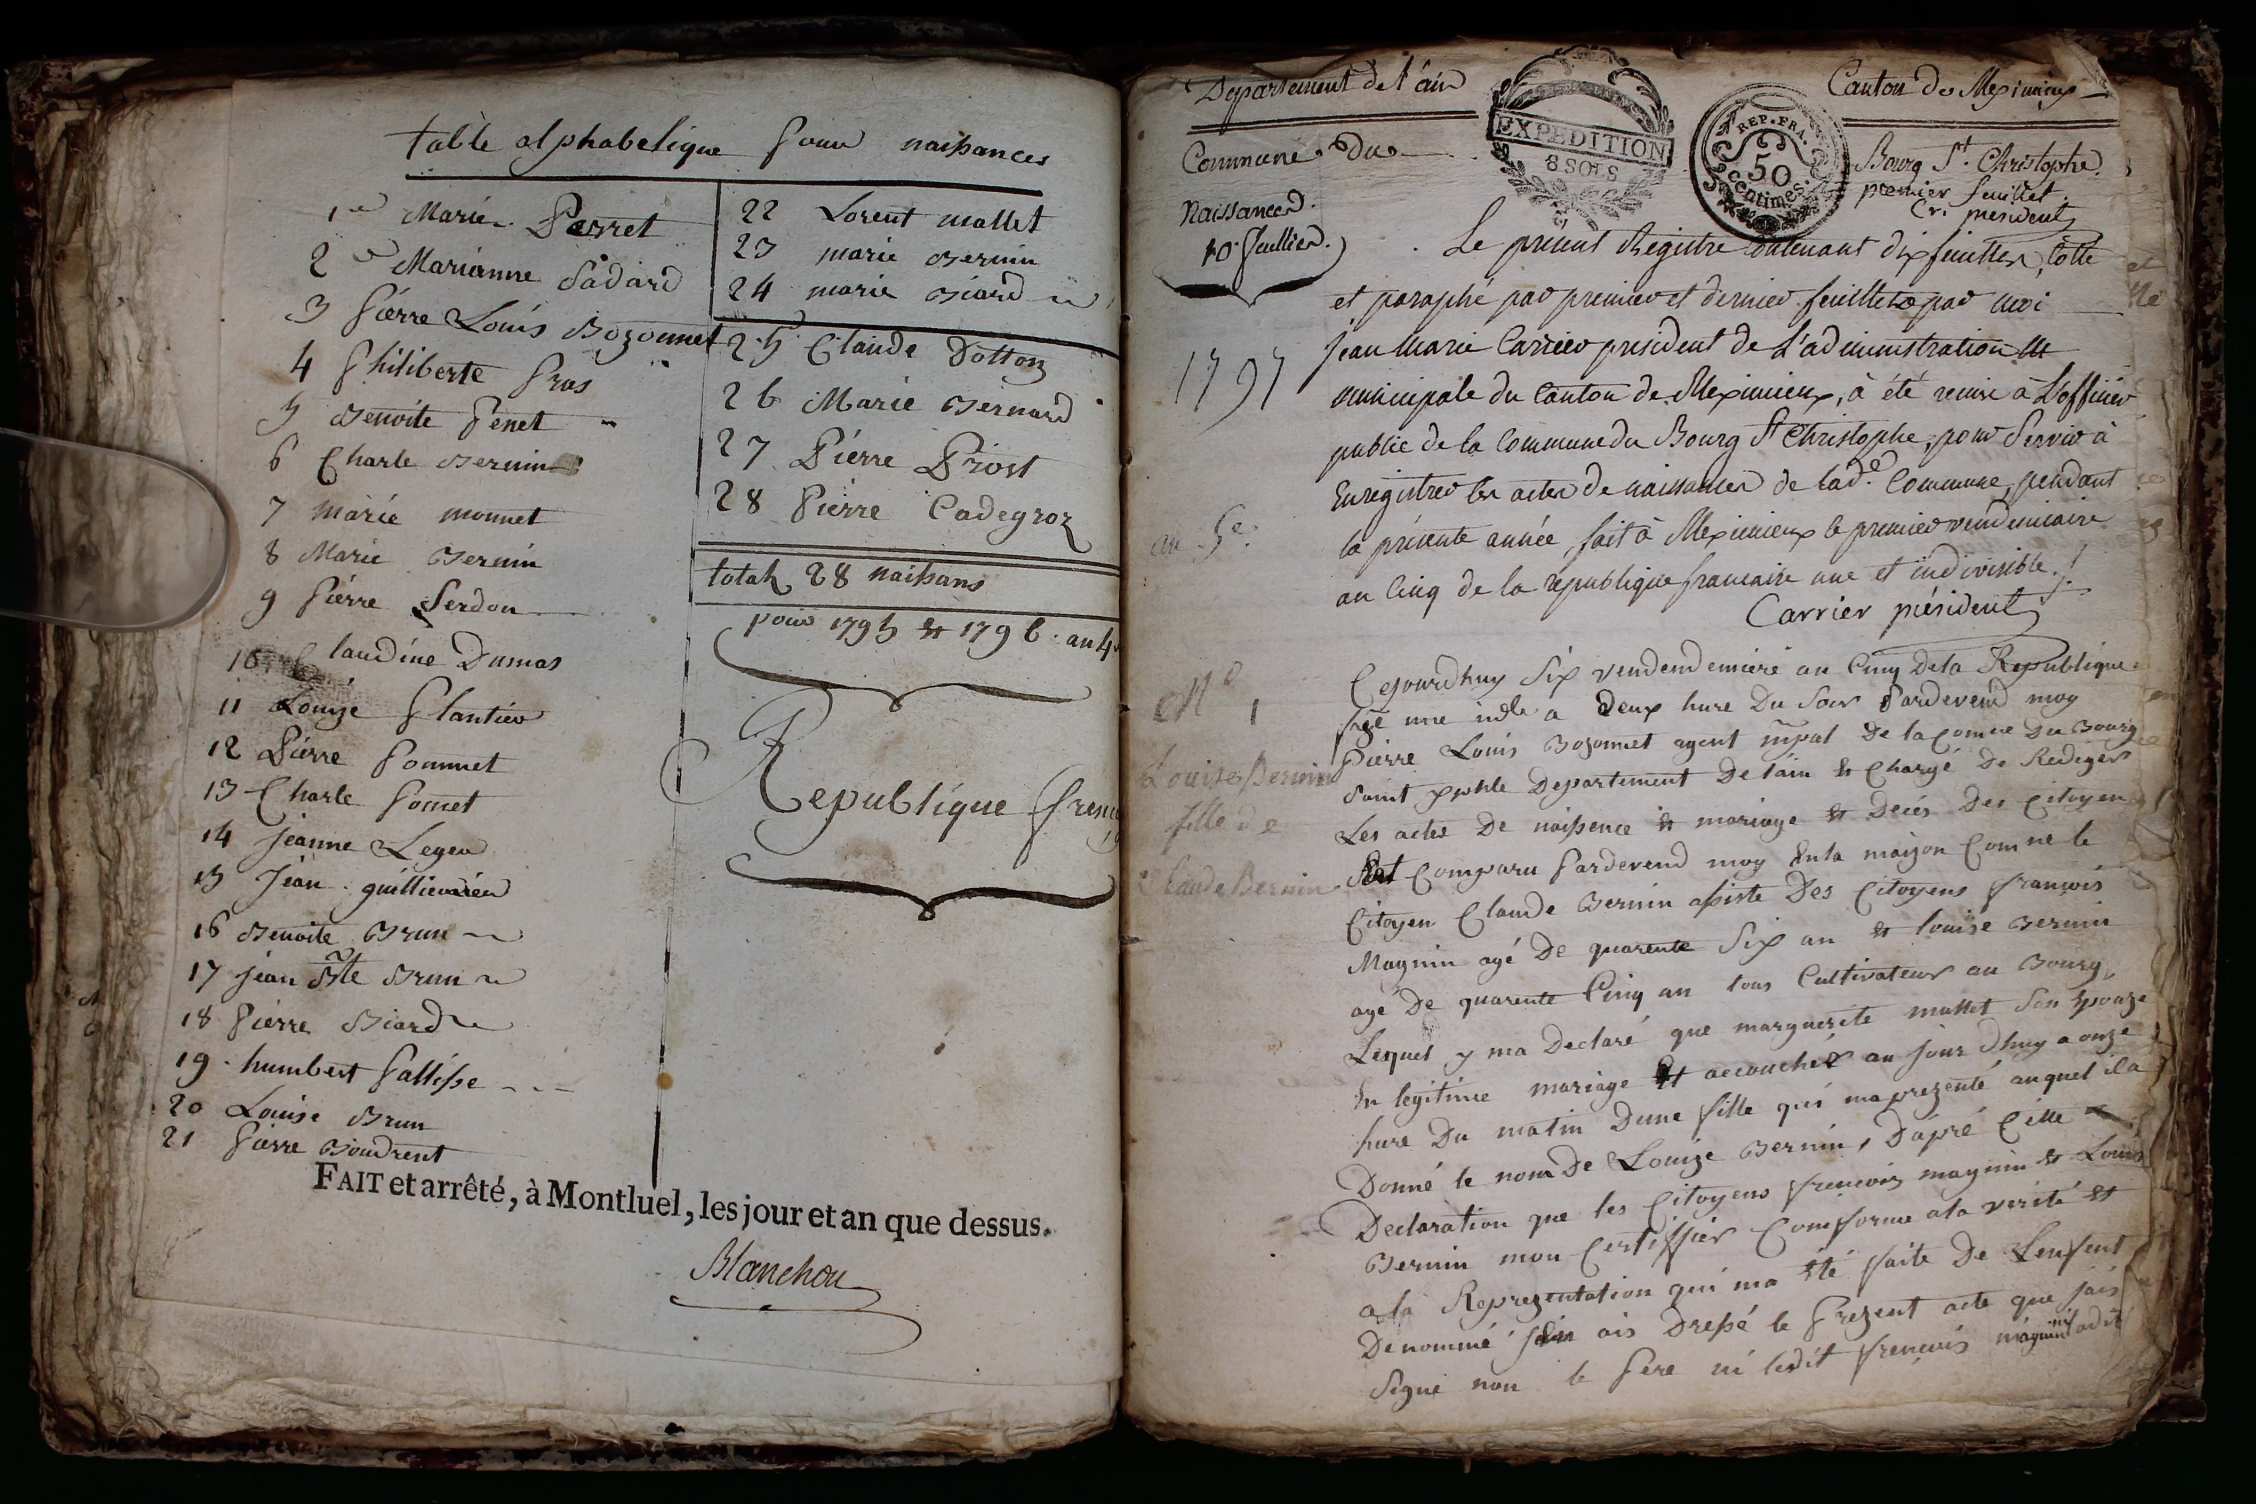 table alphabetique pour naissances
1e Marie Perret
2e Marianne Padard
3 Pierre Louis Bozonnet
4 Philiberte Pras
5 Benoite Penet
6 Charle Bernin
7 marie monnet
8 Marie Bernin
9 Pierre Perdon
10 Claudine Dumas
11 Louize Plantier
12 Pierre Pommet
13 Charle Pomet
14 jeanne Leger
15 Jean
16 Benoite Brun
17 jean Bte Brun
18 Pierre Biard
19 humbert Pallisse
20 Louise Brun
21 Pierre Boudrent
22 Lorent mallet
23 marie Bernin
24 marie Biard
25 Claude Dotton
26 Marie Bernard
27 Pierre Prost
28 Pierre Cadegroz
total 28 naissans
pour 1795 et 1796 . an 4
Republique
FAIT et arrêté, à Montluel, les jour et an que dessus.
Blanchon
Departement de l'ain
EXPEDITION
8 SOLS
REP. FRA.
50
centimes.
Canton de Meximieux
Commune du
Bourg St. Christophe
premier feuillet
Cr. president
Naissances.
10 feuillets.
Le present Registre contenant dix feuilles, cotté
et paraphé par premier et dernier feuillets par moi
1797
Jean Marie Carrier president de L'administration
municipale du Canton de Meximieux, à été remis à L'officier
public de la Commune du Bourg St Christophe, pour Servir à
Enregistrer les actes de naissances de lade. Commune, pendant
an 5e.
la présente année, fait à Meximieux le premier vendemiaire
an Cinq de la republique francaise une et indivisible ./.
Carrier président
No 1
Cejourdhuy Six vendendemiere an Cinq De la Republique
une a Deux hure Du Soir Pardevend moy
Pierre Louis Bozonnet agent mpal De la Comne Du Bourg
Louise Bernin
fille de
Claude Bernin
Saint Departement De lain et Chargé De Rediger
Les actes De naissence et mariage et Deces Des Citoyens
Est Comparu Pardevend moy En la maizon Comne le
Citoyen Claude Bernin assiste Des Citoyens françois
Magnin agé De quarente Six an et louise Bernin
agé De quarente Cinq an tous Cultivateur au Bourg,
Lequel y ma Declaré que marguerite mallet Son Epouze
En legitime mariage Et accouchér au jour dhuy a onze
hure Du matin Dune fille qui ma prezenté auquel il a
Donné le nom De Louize Bernin, Dapré Cette
Declaration que les Citoyens frençois magnin et Louis
Bernin mon Certiffier Comforme a la verité et
a la Reprezentation qui ma Eté faite De Lenfent
Denommé ais Dressé le Prezent acte que jais
Signé non le Pere ni ledit frençois magnin